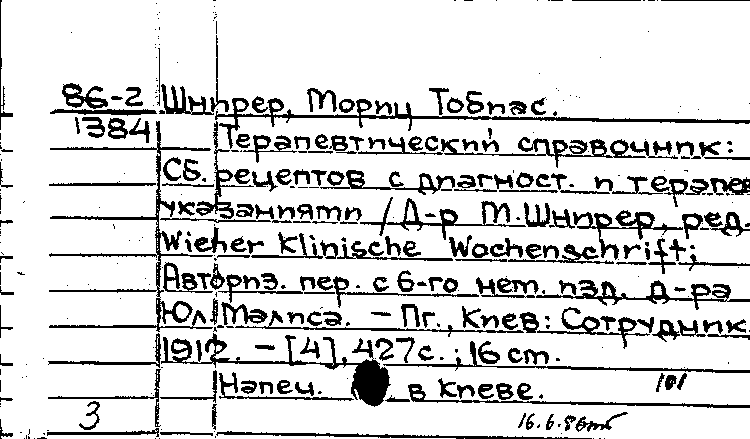 86-2 Шнирер, Мориц Тобиас.
1384 Терапевтический справочник:
Сб. рецептов с диагност. и терапев
указаниями / Д-р М. Шнирер, ред.
Wiener Klinische Wochenschrift;
Авториз. пер. с 6-го нем. изд. д-ра
Юл. Малиса. - Пг., Киев: Сотрудник
1912. - [4], 427 с.; 16 cm.
Напеч. в Киеве. 101
3 16.6.86